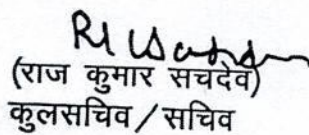 (राज कुमार सचदेव)
कुलसचिव / सचिव